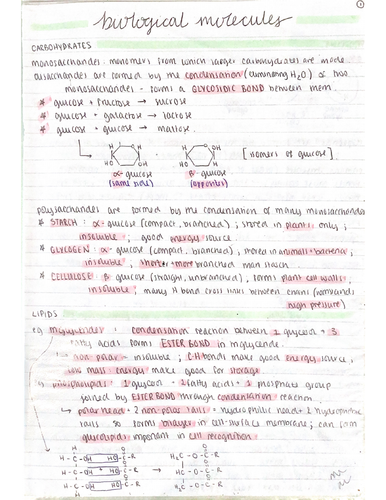 ①
biological molecules
CARBOHYDRATES
monosaccharides: monomers from which larger carbohydrates are made
disaccharides are formed by the condensation (eliminating H₂O) of two
monosaccharides - forms a GLYCOSIDIC BOND between them.
* glucose + fructose → sucrose
* glucose + galactose → lactose
* glucose + glucose → maltose.
H H OH
OH OH OH H
α-glucose β-glucose [isomers of glucose]
(same side) (opposites)
polysaccharides are formed by the condensation of many monosaccharides
* STARCH: α-glucose (compact, branched); stored in plants only;
insoluble; good energy source.
* GLYCOGEN: α-glucose (compact, branched), stored in animals + bacteria;
insoluble, shorter + more branched than starch.
* CELLULOSE: β glucose (straight, unbranched), forms plant cell walls,
insoluble; many H bond cross links between chains (
high pressure)
LIPIDS
eg triglycerides: condensation reaction between 1 glycerol + 3
fatty acids forms ESTER BOND in triglyceride.
↳ non polar = insoluble; C-H bonds make good energy source,
low mass: energy make good for storage
phospholipids: 1 glycerol + 2 fatty acids + 1 phosphate group
joined by ESTER BOND through condensation reaction.
↳ polar head + 2 non polar tails = hydrophilic head + 2 hydrophobic
tails so forms bilayer in cell-surface membrane; can form
glycolipids important in cell recognition
H O O
H - C - OH HO - C - R H₂C - O - C - R
H - C - OH + HO - C - R → HC - O - C - R
H - C - OH HO - C - R H₂C - O - C - R
H